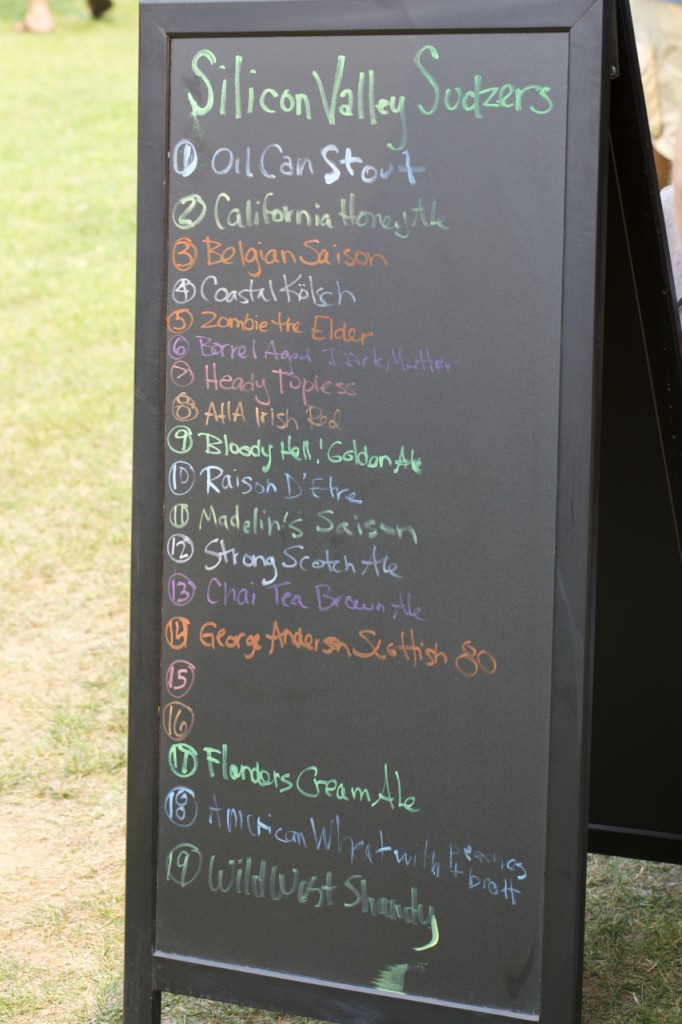 Silicon Valley Sudzers
1 Oil Can Stout
2 California Honey Ale
3 Belgian Saison
4 Coastal Kölsch
5 Zombie the Elder
6 Barrel Aged Dark Matter
7 Heady Topless
8 AHA Irish Red
9 Bloody Hell! Golden Ale
10 Raison D'Etre
11 Madelin's Saison
12 Strong Scotch Ale
13 Chai Tea Brown Ale
14 George Anderson Scottish 80
15
16
17 Flanders Cream Ale
18 American Wheat with peaches + brett
19 Wild West Shandy